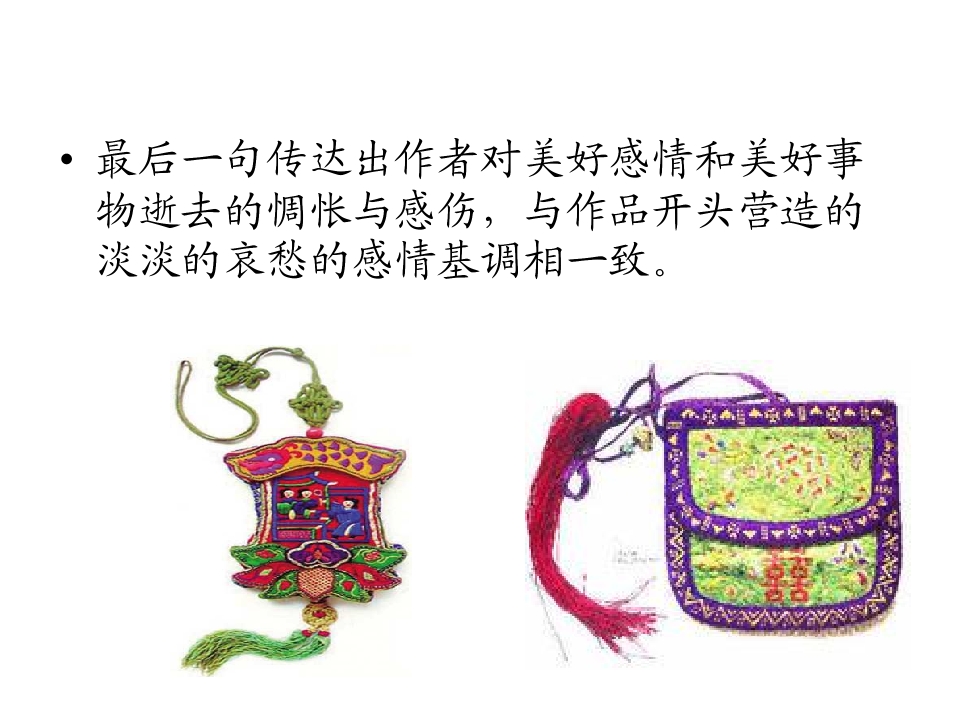 • 最后一句传达出作者对美好感情和美好事
物逝去的惆怅与感伤，与作品开头营造的
淡淡的哀愁的感情基调相一致。
囍